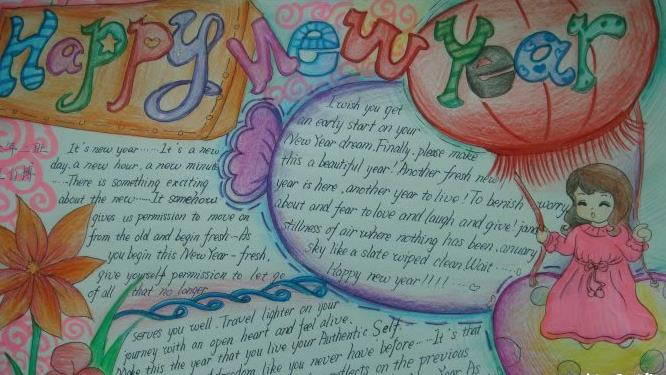 Happy New Year
It's new year……It's a new
day, a new hour, a new minute
……There is something exciting
about the new……It somehow
gives us permission to move on
from the old and begin fresh–As
you begin this New Year – fresh,
give yourself permission to let go
of all that no longer
serves you well. Travel lighter on your
journey with an open heart and feel alive.
Make this the year that you live your Authentic Self.
freedom like you never have before……It's that
reflects on the previous
Year As
I wish you get
an early start on your
New Year dream. Finally, please make
this a beautiful year! Another fresh new
year is here, another year to live! To banish worry
about and fear to love and laugh and give! january
stillness of air where nothing has been,
sky like a slate wiped clean. Wait……
Happy new year!!!!……